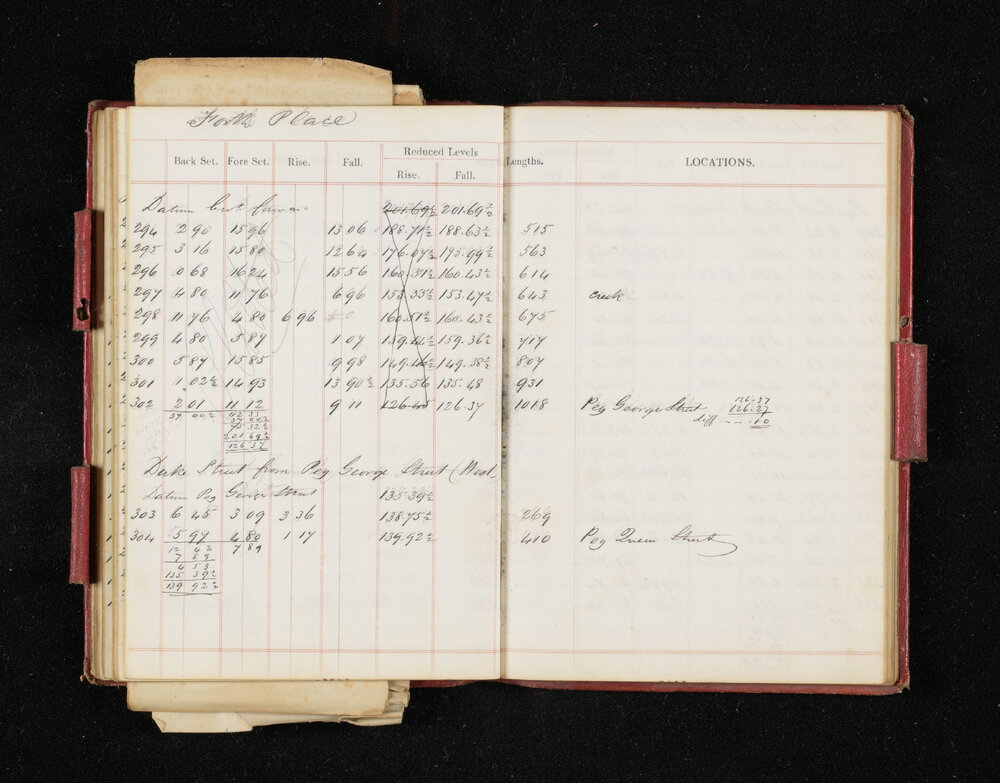 Forth Place
Back Set. Fore Set. Rise. Fall. Reduced Levels Rise. Fall. Lengths. LOCATIONS.
Datum 201.69½ 201.69½
294 2 90 15 96 13 06 188.71½ 188.63½ 515
295 3 16 15 80 12 64 176.07½ 175.99½ 563
296 0 68 16 24 15.56 160.51½ 160.43½ 614
297 4 80 11 76 6 96 153.55½ 153.47½ 643 creek
298 11 76 4 80 6 96 160.51½ 160.43½ 675
299 4 80 5 87 1 07 159.44½ 159.36½ 717
300 5 87 15 85 9 98 149.46½ 149.38½ 807
301 1 02½ 14 93 13 90½ 135.56 135.48 931
302 2 01 11 12 9 11 126.45 126.37 1018 Peg George Street 126.37
37 00½ 112 33 126.27
37 00½ diff - - .10
75 32½
201 69½
126 37
Duke Street from Peg George Street (West
Datum Peg George Street 135.39½
303 6 45 3 09 3 36 138.75½ 269
304 5 97 4 80 1 17 139.92½ 410 Peg Queen Street
12 42 7 89
7 89
4 53
135 39½
139 92½